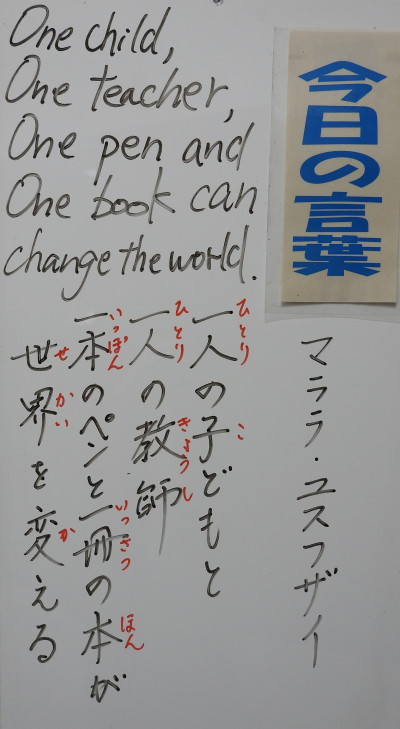 One child,
One teacher,
One pen and
One book can
change the world.
今日の言葉
マララ・ユスフザイ
一人の子どもと
ひとり
こ
一人の教師
ひとり
きょうし
一本のペンと一冊の本が
いっぽん
いっさつ
ほん
世界を変える
せかい
か